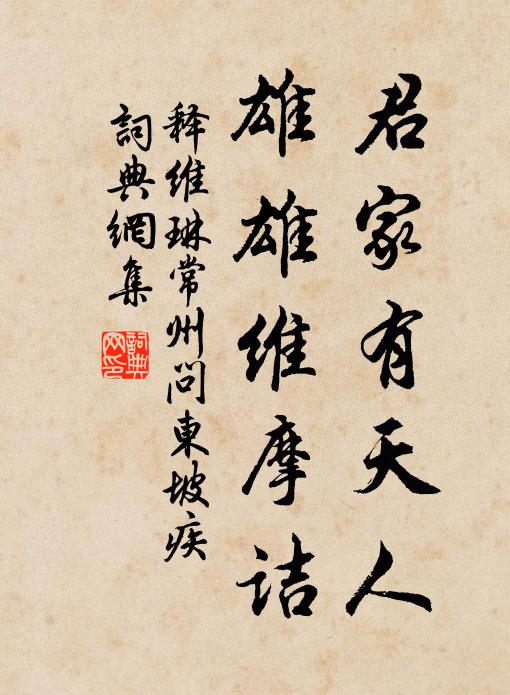 君家有天人
雄雄维摩诘
释维琳常州问東坡疾
詞典網集
詞典网印